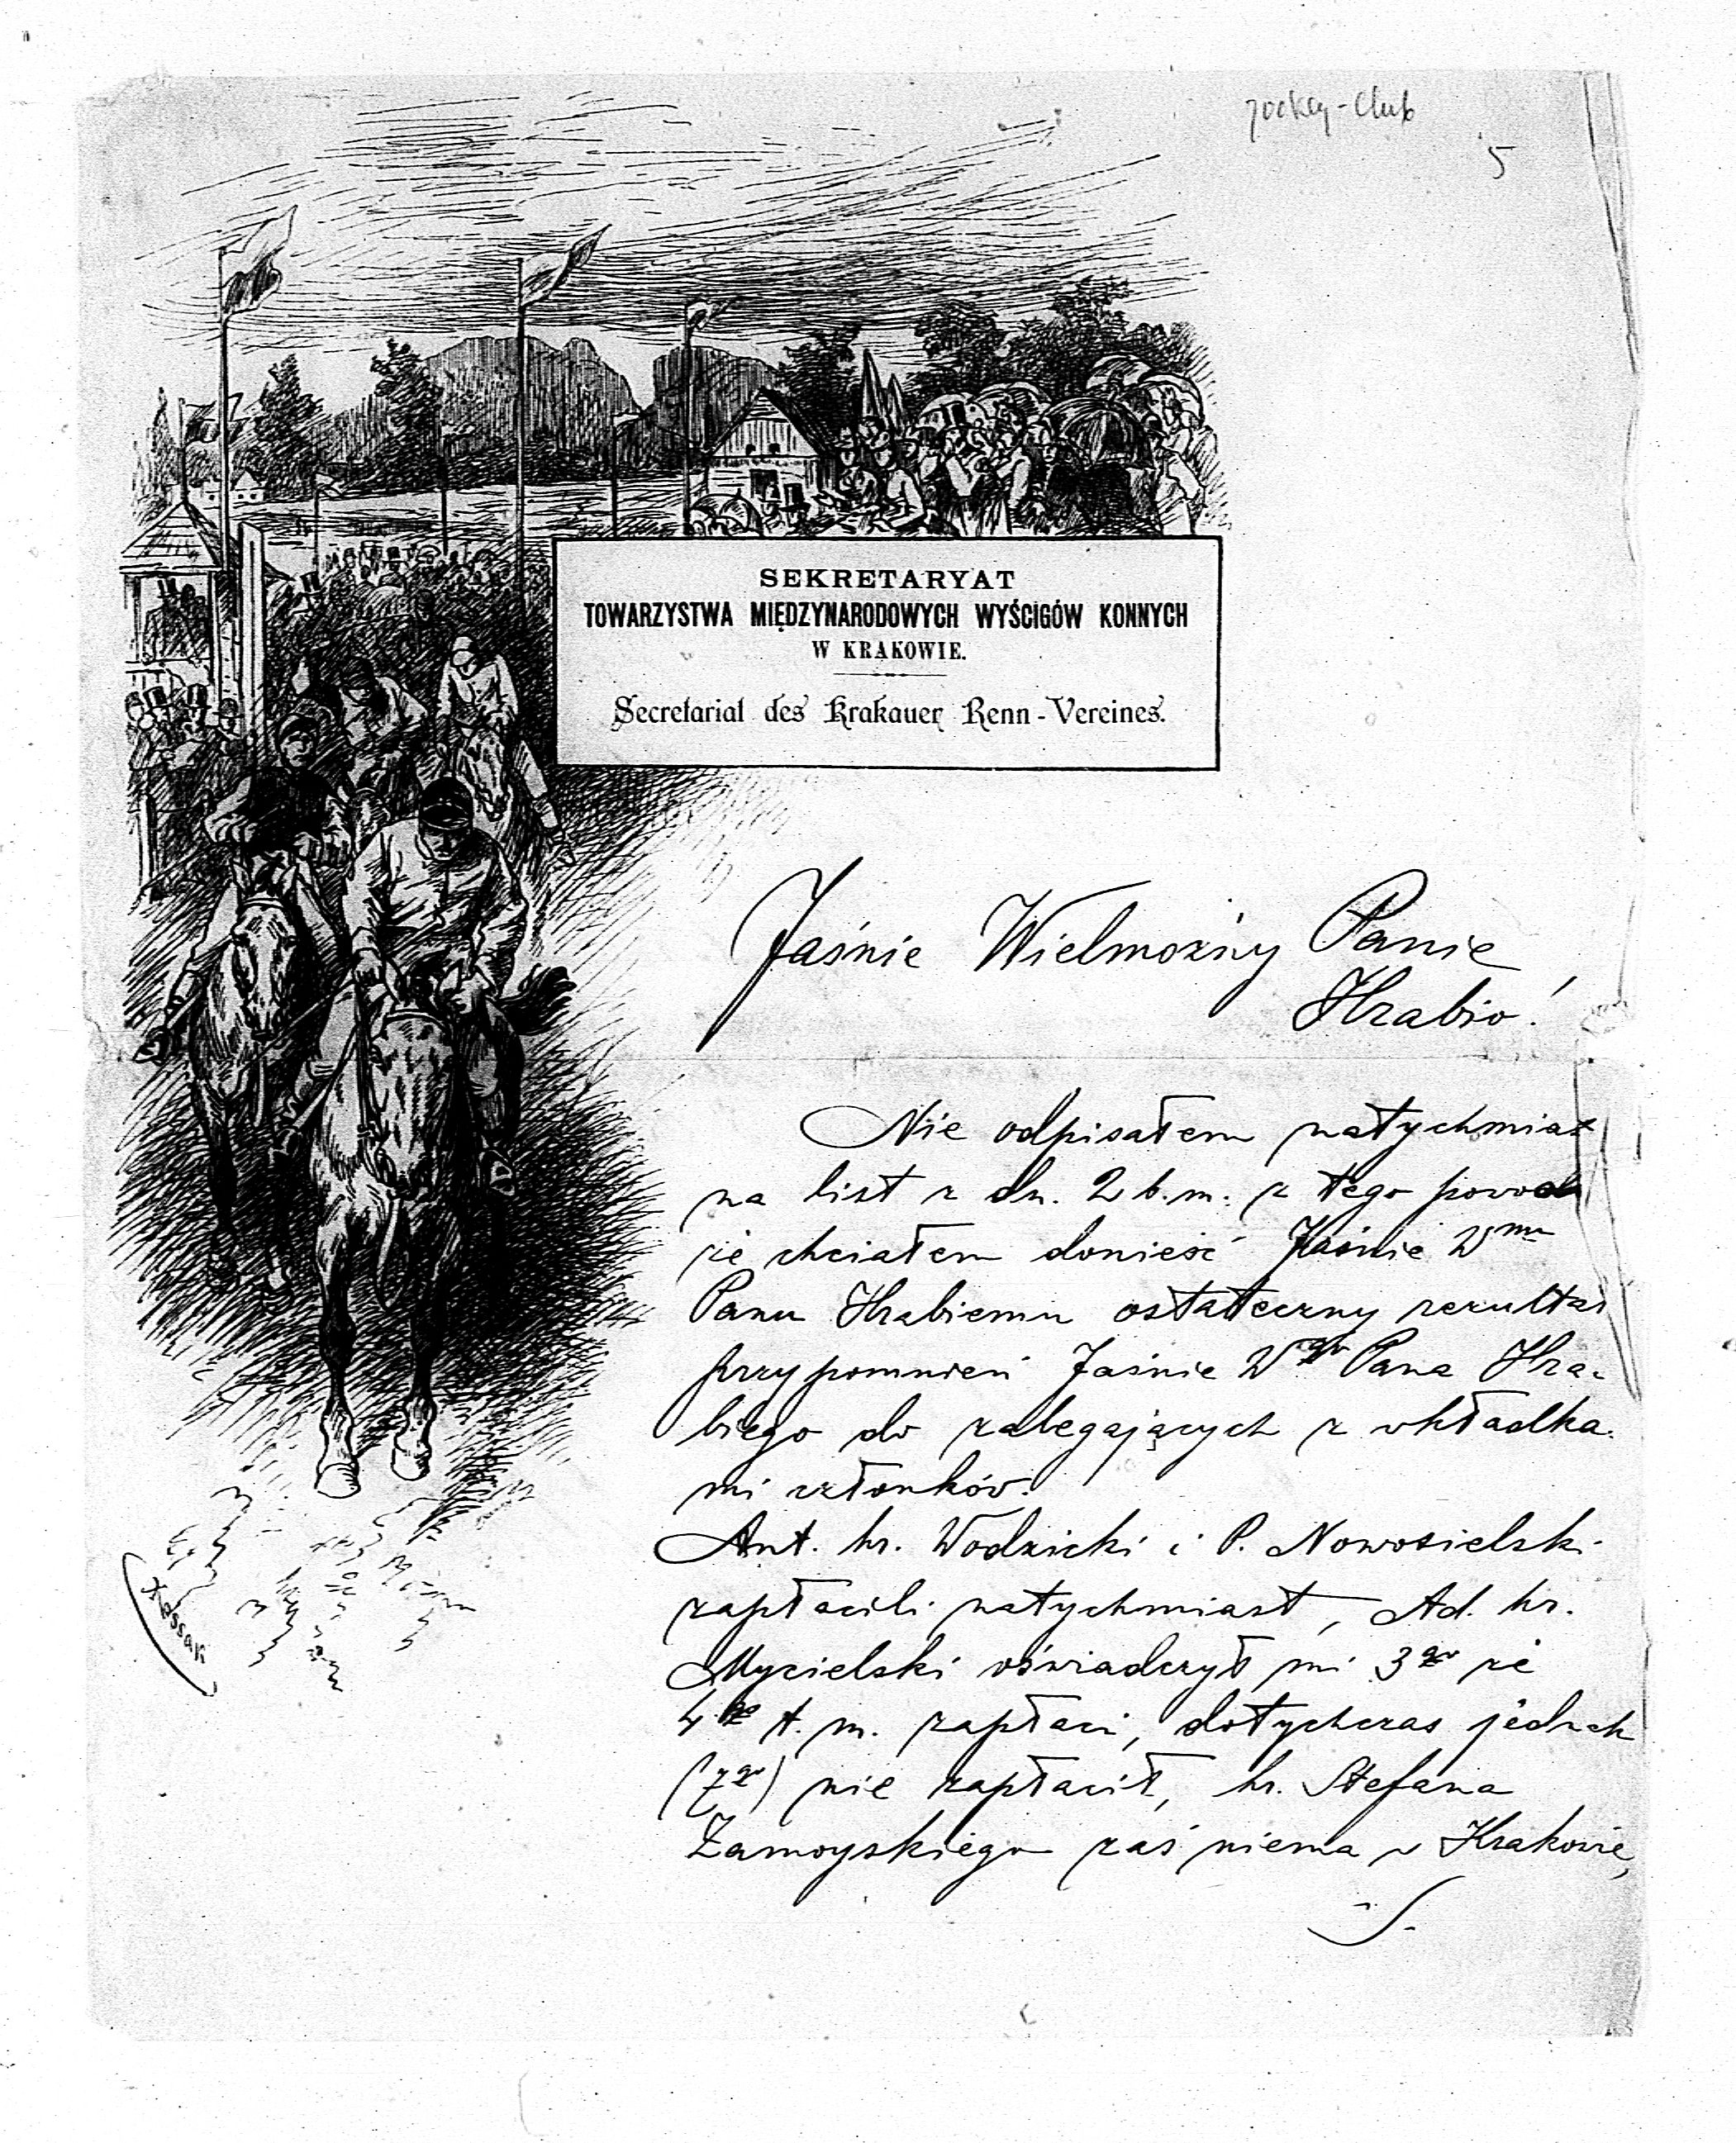 Jockey-Club
5
SEKRETARYAT
TOWARZYSTWA MIĘDZYNARODOWYCH WYŚCIGÓW KONNYCH
W KRAKOWIE.
Secretariat des Krakauer Renn-Vereines.
Jaśnie Wielmożny Panie
Hrabio!
Nie odpisałem natychmiast
na list z dn. 2 b.m. z tego powodu
że chciałem donieść Jaśnie Wmu
Panu Hrabiemu ostateczny rezultat
przypomnień Jaśnie Wgo Pana Hra-
biego do zalegających z wkładka-
mi członków.
Ant. hr. Wodzicki i P. Nowosielski
zapłacili natychmiast, Ad. hr.
Mycielski oświadczył mi 3go że
4go t.m. zapłaci, dotychczas jednak
(7go) nie zapłacił, hr. Stefana
Zamoyskiego zaś niema w Krakowie,
Kossak